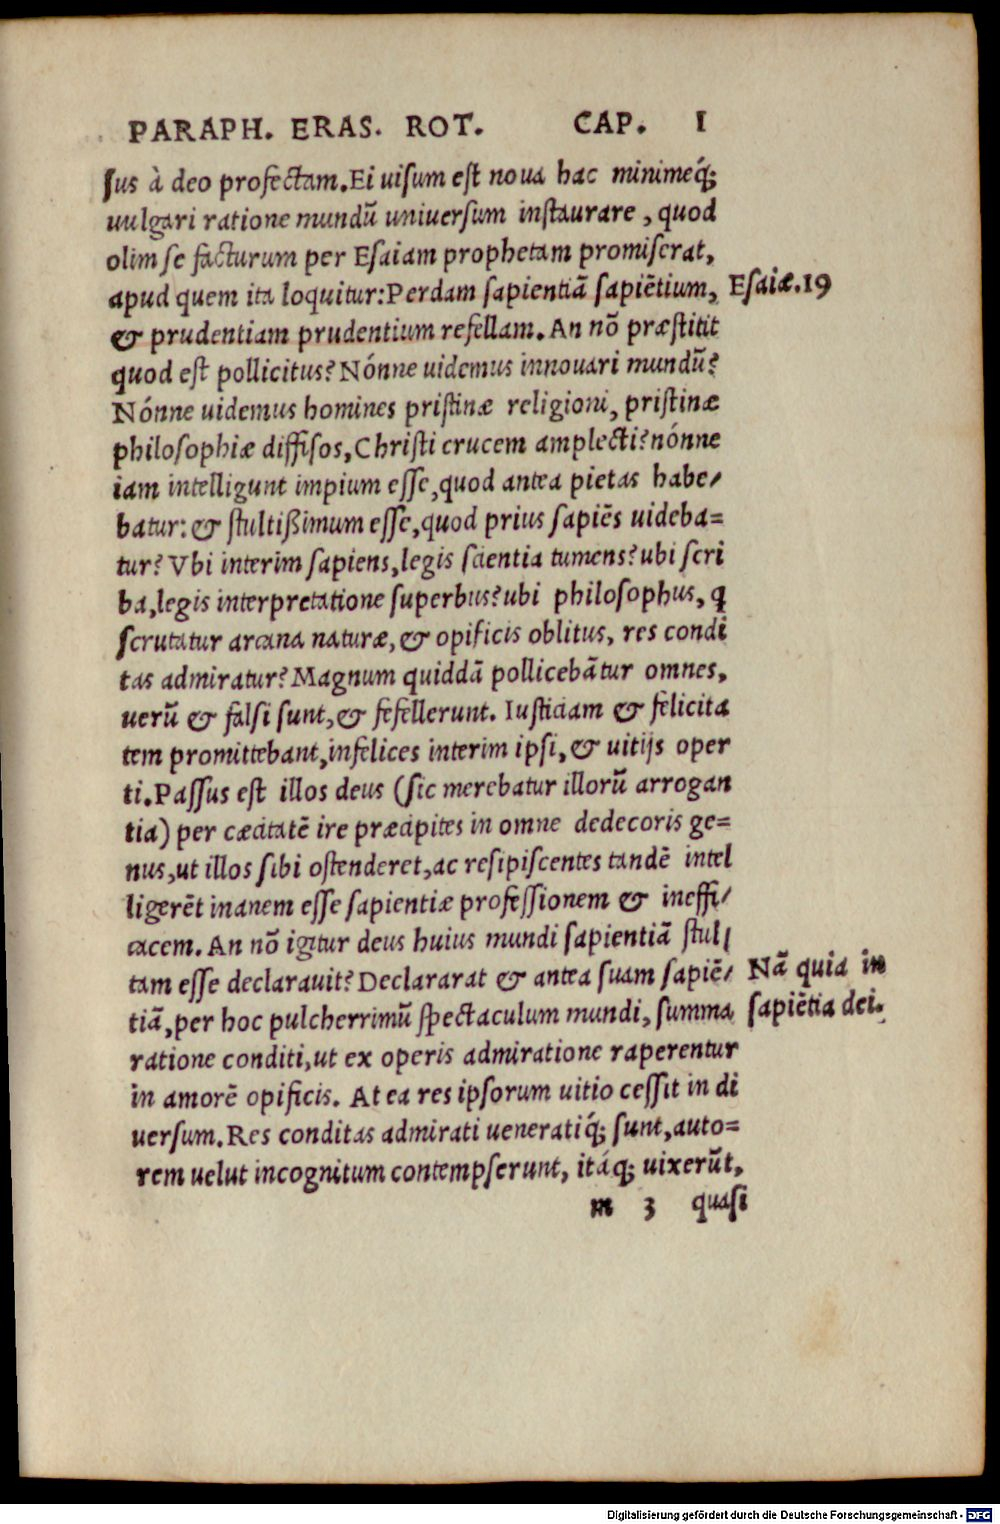 PARAPH. ERAS. ROT. CAP. I
ſus à deo profectam. Ei uiſum eſt noua hac minimeq́;
uulgari ratione mundũ uniuerſum inſtaurare, quod
olim ſe facturum per Eſaiam prophetam promiſerat,
apud quem ita loquitur: Perdam ſapientiã ſapiẽtium, Eſaiæ. 19
& prudentiam prudentium refellam. An nõ præſtitit
quod eſt pollicitus? Nónne uidemus innouari mundũ?
Nónne uidemus homines priſtinæ religioni, priſtinæ
philoſophiæ diffiſos, Chriſti crucem amplecti? nónne
iam intelligunt impium eſſe, quod antea pietas habe/
batur: & ſtultißimum eſſe, quod prius ſapiẽs uideba=
tur? Vbi interim ſapiens, legis ſcientia tumens? ubi ſcri
ba, legis interpretatione ſuperbus? ubi philoſophus, q
ſcrutatur arcana naturæ, & opificis oblitus, res condi
tas admiratur? Magnum quiddã pollicebãtur omnes,
uerũ & falſi ſunt, & fefellerunt. Iuſticiam & felicita
tem promittebant, infelices interim ipſi, & uitijs oper
ti. Paſſus eſt illos deus (ſic merebatur illorũ arrogan
tia) per cæcitatẽ ire præcipites in omne dedecoris ge=
nus, ut illos ſibi oſtenderet, ac reſipiſcentes tandẽ intel
ligerẽt inanem eſſe ſapientiæ profeſſionem & ineffi/
cacem. An nõ igitur deus huius mundi ſapientiã ſtul/
tam eſſe declarauit? Declararat & antea ſuam ſapiẽ/ Nã quia in
tiã, per hoc pulcherrimũ ſpectaculum mundi, ſumma ſapiẽtia dei.
ratione conditi, ut ex operis admiratione raperentur
in amorẽ opificis. At ea res ipſorum uitio ceſſit in di
uerſum. Res conditas admirati ueneratiq́; ſunt, auto=
rem uelut incognitum contempſerunt, itáq; uixerũt,
m 3 quaſi
Digitalisierung gefördert durch die Deutsche Forschungsgemeinschaft - DFG